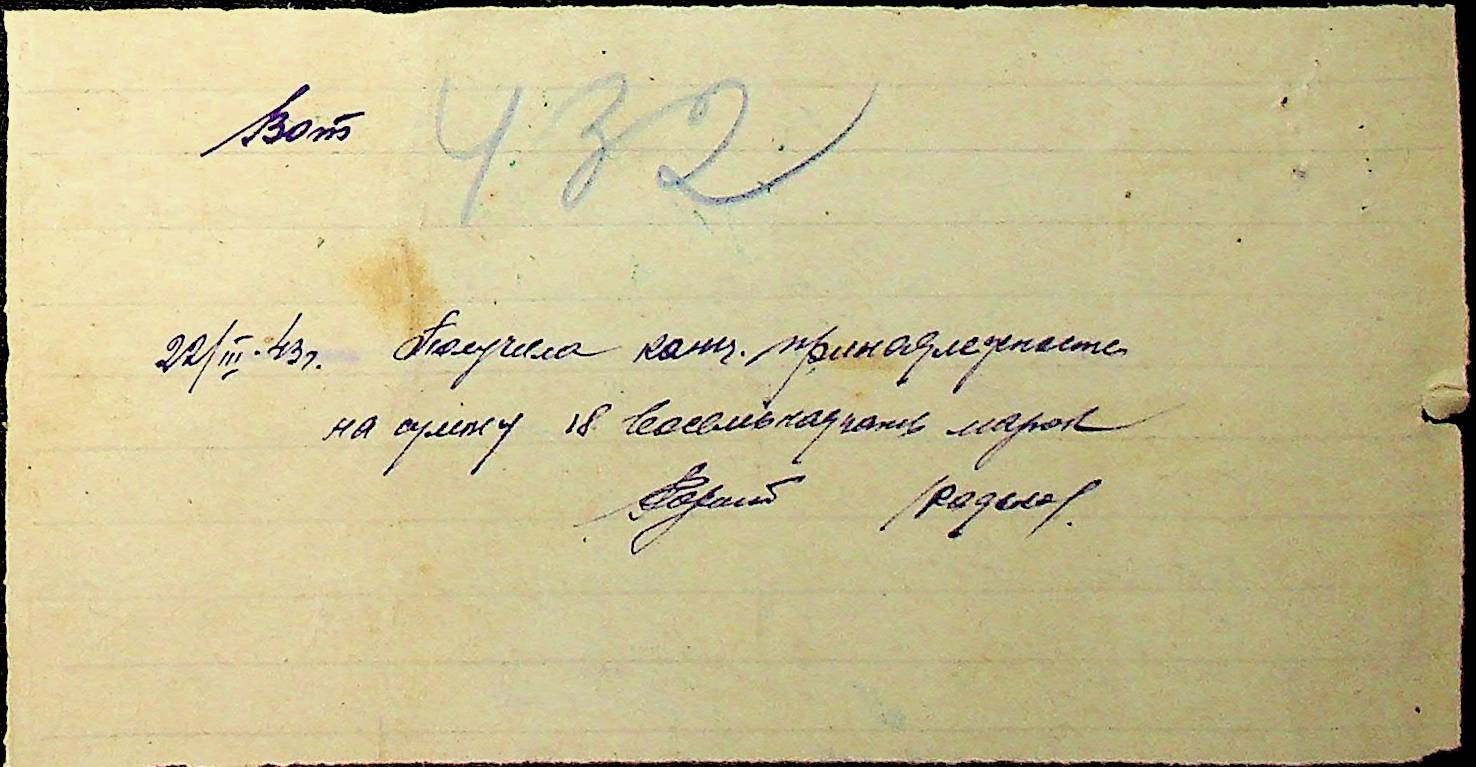 432
22/III-43г. Получила канц. принадлежности
на сумму 18 восемьнадцать марок